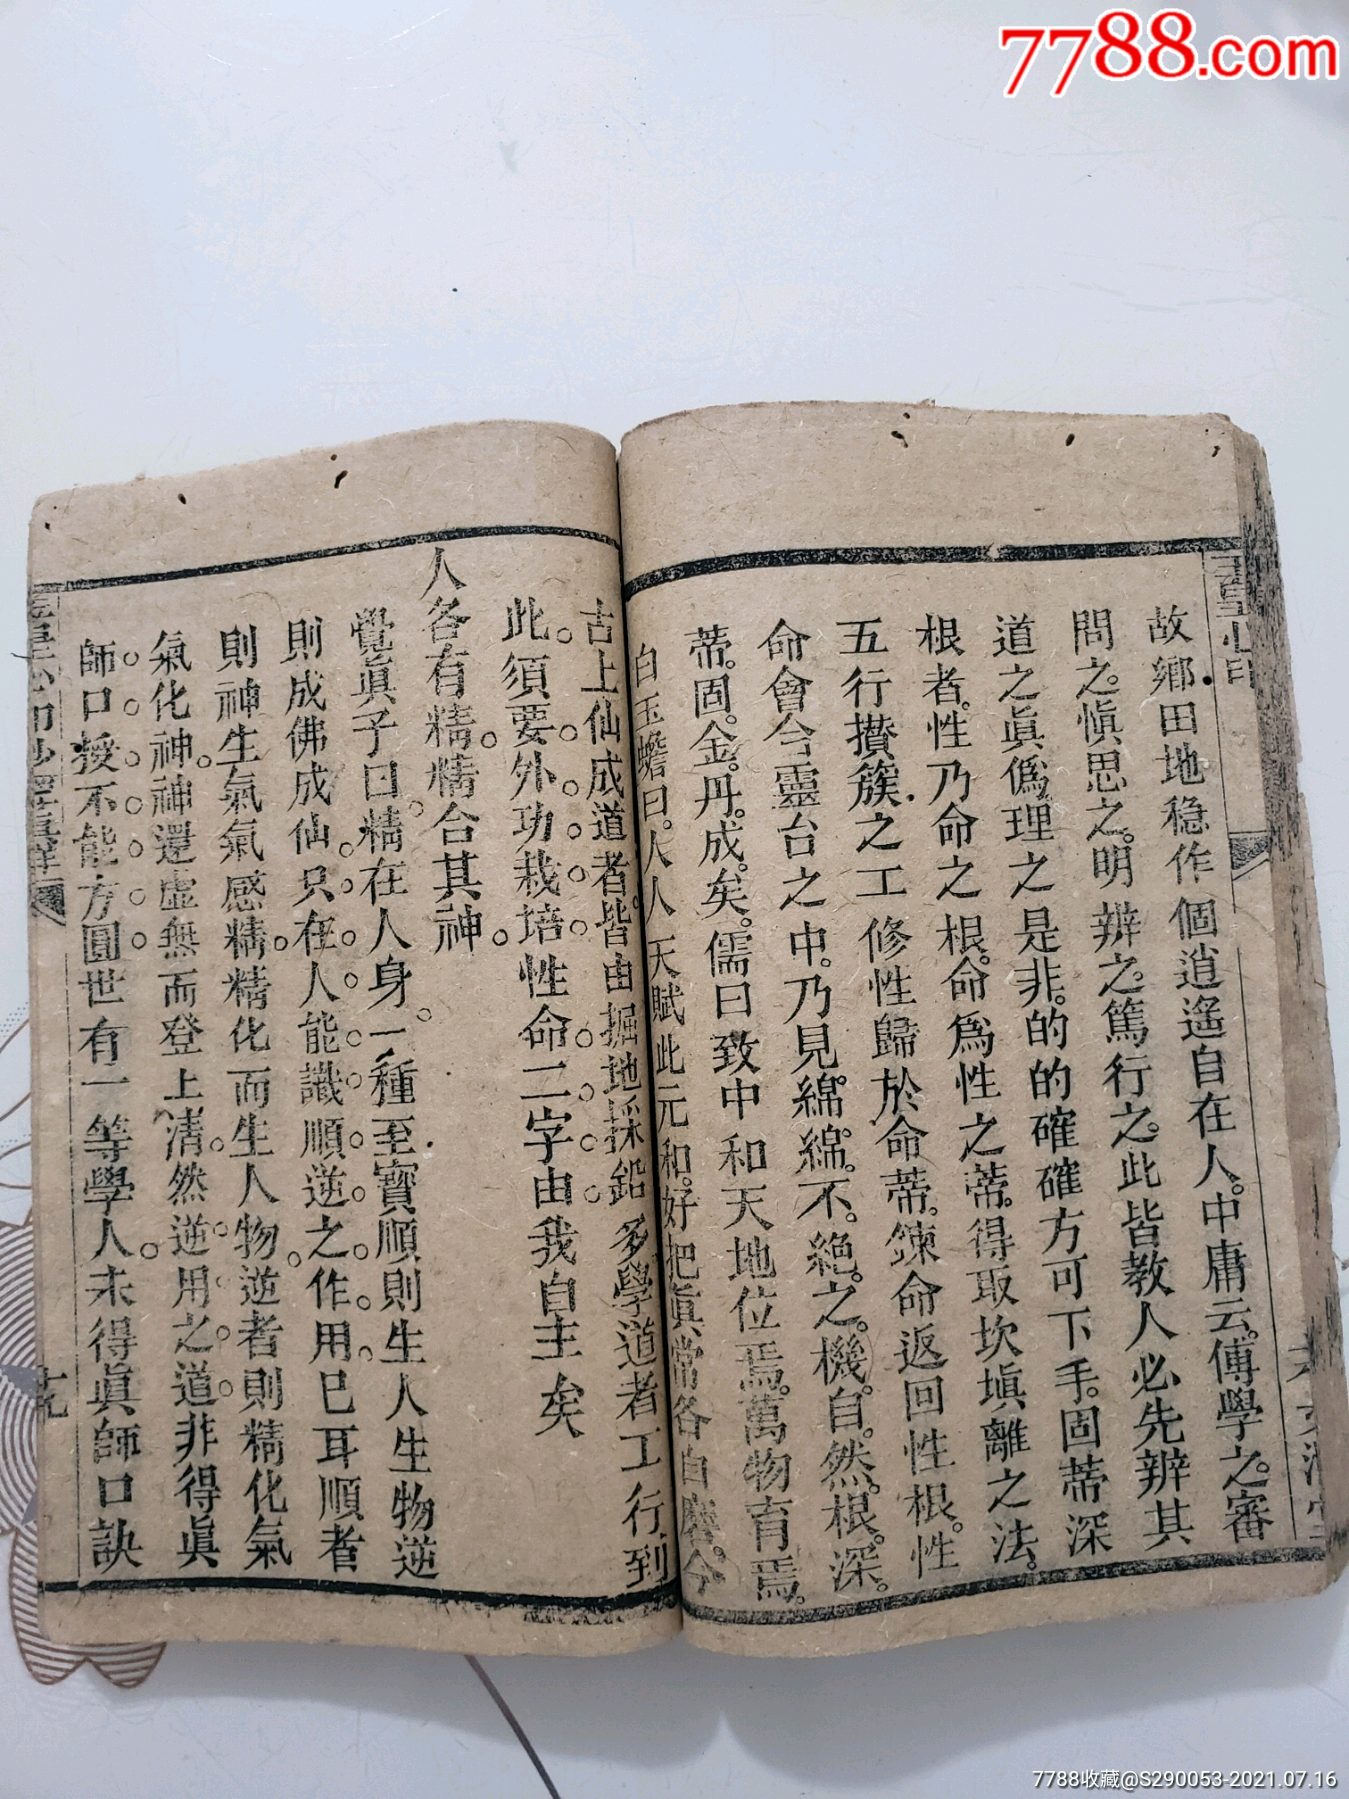 7788.com
玉皇心印
故鄉田地稳作個逍遙自在人。中庸云。傅學之。審
問之。慎思之。明辨之。篤行之。此皆教人必先辨其
道之眞僞。理之是非。的的確確方可下手。固蒂深
根者。性乃命之根。命爲性之蒂。得取坎塡離之法。
五行攅簇之工修性歸於命蒂。鍊命返回性根。性
命會合靈台之中。乃見綿。綿。不。絕。之。機。自。然。根。深。
蒂。固。金。丹。成。矣。儒曰致中和天地位焉。萬物育焉。
白玉蟾曰。人人天賦此元和。好把眞常各自磨。今
古上仙成道者。皆由掘地採鉛。多學道者工行到
此。須要外功栽培性命二字由我自主矣
人各有精。精合其神。
覺眞子曰。精在人身。一種至寳順則生人生物逆
則成佛成仙。只在人能識順逆之作用已耳順者
則神生氣氣感精。精化而生人物。逆者則精化氣
氣化神。神還虛無而登上清。然逆用之道非得眞
師口授不能方圓世有一等學人。未得眞師口訣
玉皇心印妙經眞詳
十九
7788收藏@S290053-2021.07.16